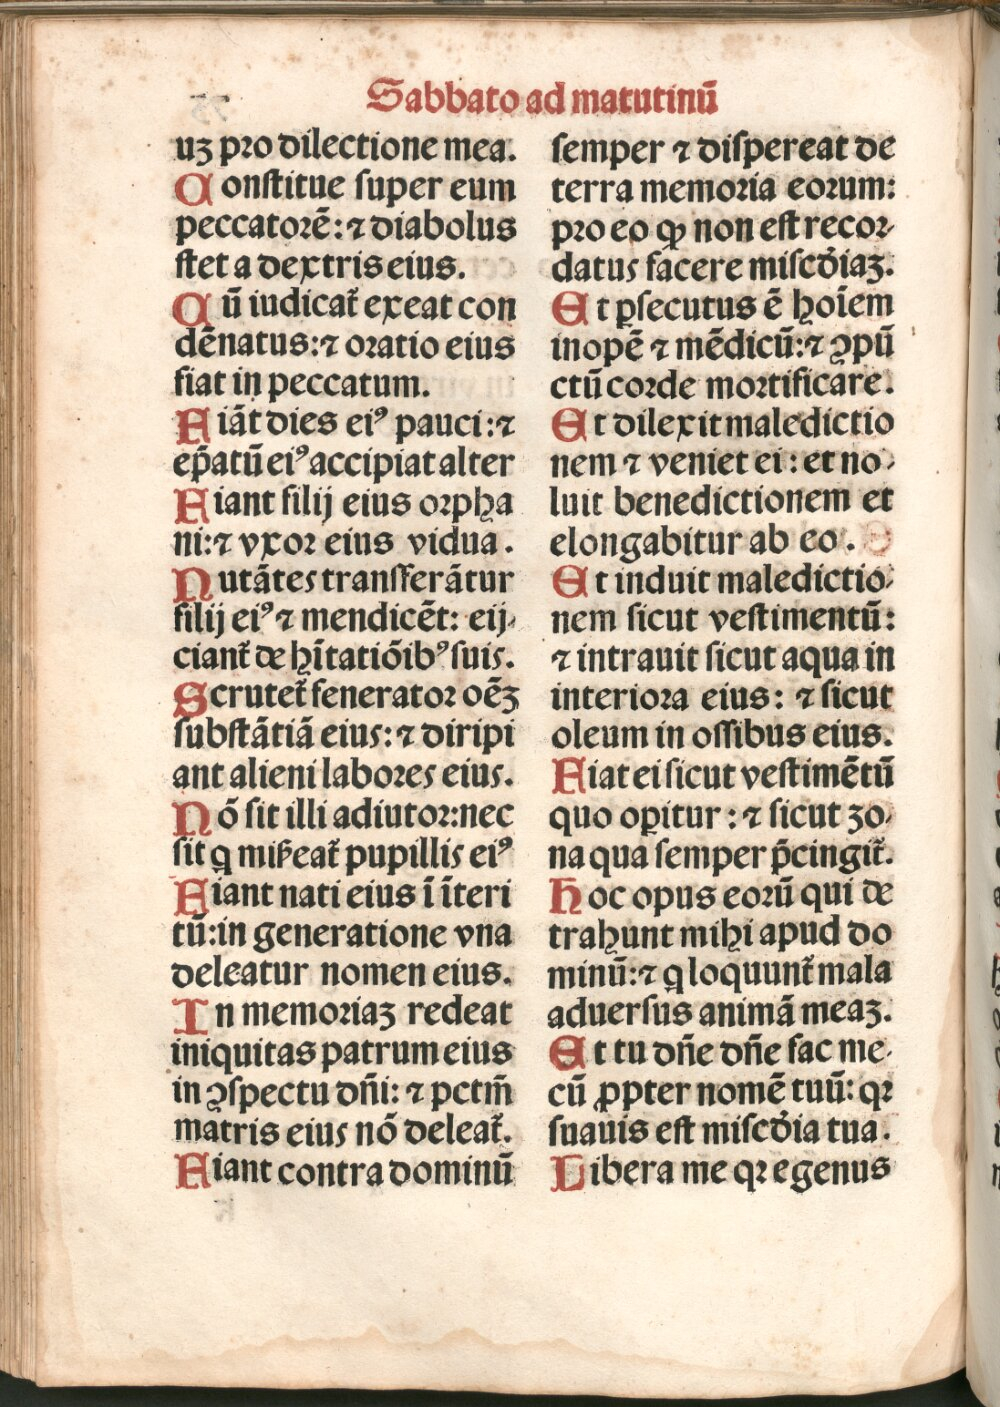 Sabbato ad matutinū
uʒ pro dilectione mea.
Constitue super eum
peccatorē: ⁊ diabolus
stet a dextris eius.
Cū iudicat̄ exeat con
dēnatus: ⁊ oratio eius
fiat in peccatum.
Fiāt dies eiꝰ pauci: ⁊
ep̄atū eiꝰ accipiat alter
Fiant filij eius orpha
ni: ⁊ vxor eius vidua.
Nutātes transferātur
filij eiꝰ ⁊ mendicēt: eij-
ciant̄ de hītatiōibꝰ suis.
Scrutet̄ fenerator oēʒ
substātiā eius: ⁊ diripi
ant alieni labores eius.
Nō sit illi adiutor: nec
sit q mis̄eat̄ pupillis eiꝰ
Fiant nati eius ī īteri
tū: in generatione vna
deleatur nomen eius.
In memoriaʒ redeat
iniquitas patrum eius
in ꝯspectu dn̄i: ⁊ pctm̄
matris eius nō deleat̄.
Fiant contra dominū
semper ⁊ dispereat de
terra memoria eorum:
pro eo ꝙ non est recor-
datus facere misc̄diaʒ.
Et ꝑsecutus ē hoīem
inopē ⁊ mēdicū: ⁊ ꝯpū
ctū corde mortificare.
Et dilexit maledictio
nem ⁊ veniet ei: et no-
luit benedictionem et
elongabitur ab eo.
Et induit maledictio-
nem sicut vestimentū:
⁊ intrauit sicut aqua in
interiora eius: ⁊ sicut
oleum in ossibus eius.
Fiat ei sicut vestimētū
quo oꝑitur: ⁊ sicut zo-
na qua semper p̄cingit̄.
Hoc opus eorū qui de
trahunt mihi apud do
minū: ⁊ q loquunt̄ mala
aduersus animā meaʒ.
Et tu dn̄e dn̄e fac me-
cū ꝓpter nomē tuū: qꝛ
suauis est misc̄dia tua.
Libera me qꝛ egenus